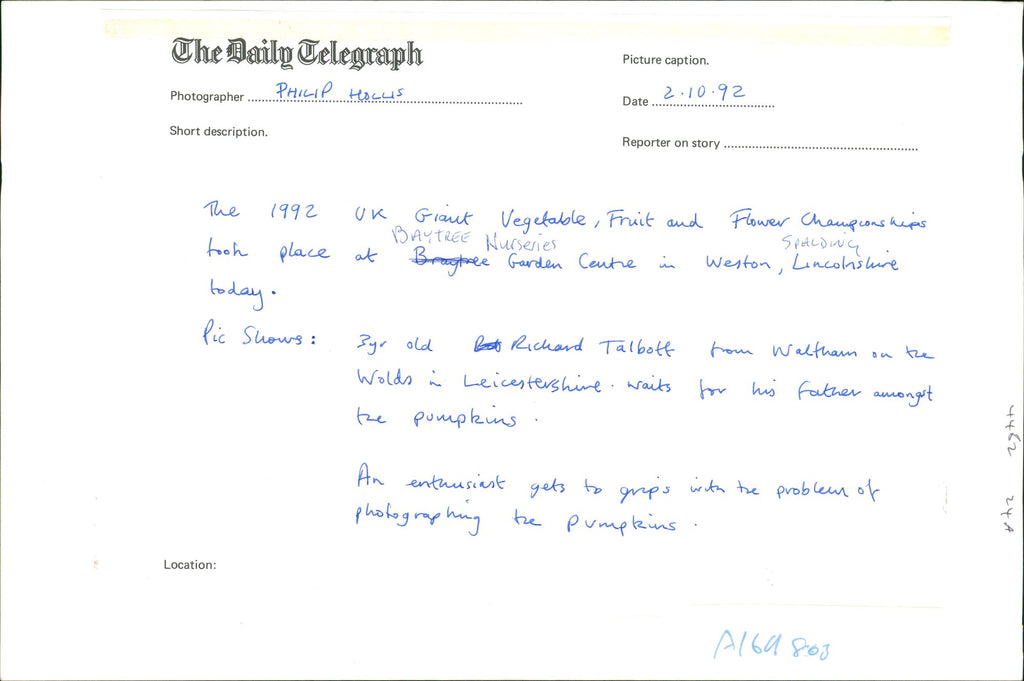 The Daily Telegraph
Picture caption.
Photographer PHILIP HOLLIS
Date 2.10.92
Short description.
Reporter on story
The 1992 UK Giant Vegetable, Fruit and Flower Championships
BAYTREE Nurseries SPALDING
took place at Braytree Garden Centre in Weston, Lincolnshire
today.
Pic Shows: 3yr old Richard Talbott from Waltham on the
Wolds in Leicestershire. waits for his father amongst
the pumpkins.
An enthusiast gets to grips with the problem of
photographing the pumpkins.
Location:
4462 24A